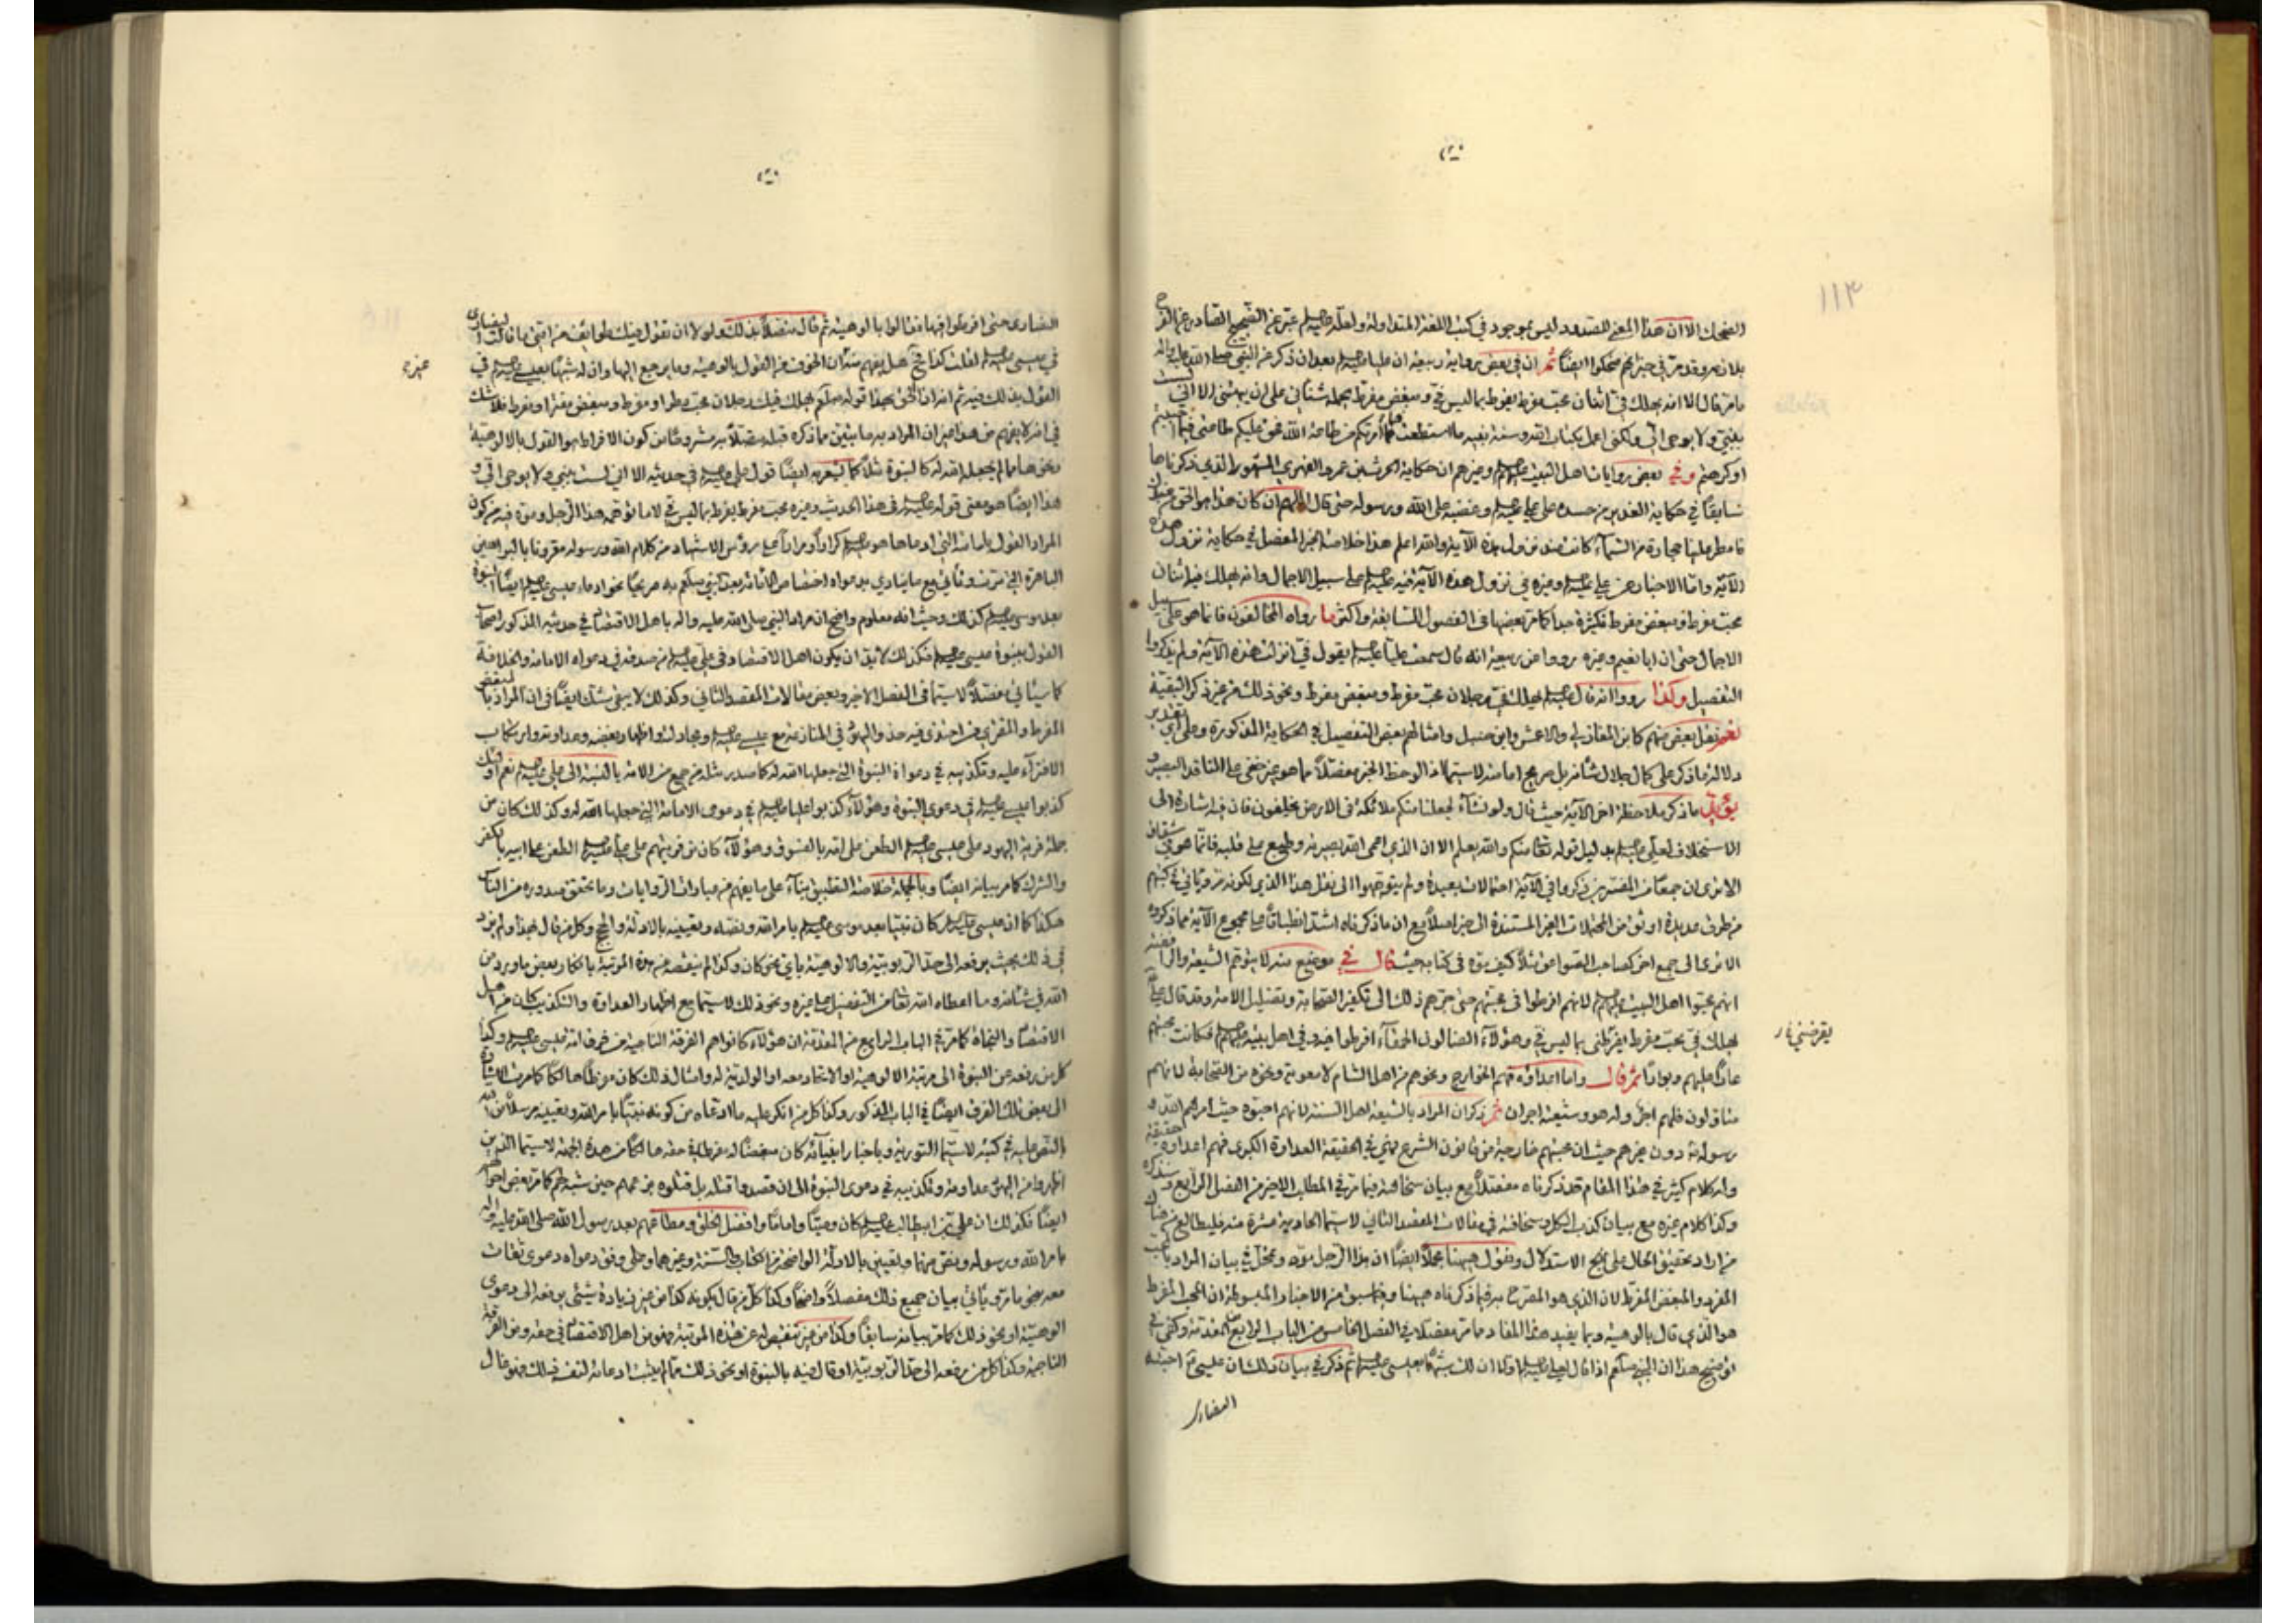 ١١٣
الضحك الا ان هذا المعنى للصدود ليس بموجود في كتب اللغة المتداولة ولعله عليه السلام عبر عن الضجيج الصادر عن الفرح
ثم ان في بعض رواية ربيعة ان عليا عليه السلام بعد ان ذكر عن النبي صلى الله عليه واله
ما مر قال الا انه يهلك في اثنان محب مفرط يقرظ بما ليس في ومبغض مفرط يحمله شناني على ان يبهتني الا اني لست
بنبي ولا يوحى الي ولكني اعمل بكتاب الله وسنة نبيه ما استطعت فما امرتكم من طاعة الله فحق عليكم طاعتي فيما احببتم
او كرهتم وفي بعض روايات اهل البيت عليهم السلام وغيرهم ان حكاية الحرث بن عمرو الفهري المشهور الذي ذكرناها
سابقا في حكاية الغدير من حسده على علي عليه السلام وغضبه على الله ورسوله حتى قال اللهم ان كان هذا هو الحق من عندك
فامطر علينا حجارة من السماء كانت عند نزول هذه الآية والله اعلم هذا خلاصة الخبر المفصل في حكاية نزول هذه
الآية واما الاخبار عن علي عليه السلام وغيره في نزول هذه الآية فيه عليه السلام على سبيل الاجمال وانه يهلك فيه اثنان
محب مفرط ومبغض مفرط فكثيرة جدا كما مر بعضها في الفصول السابقة واكثر ما رواه المخالفون فانما هو على سبيل
الاجمال حتى ان ابا نعيم وغيره رووا عن ربيعة انه قال سمعت عليا عليه السلام يقول في انزلت هذه الآية ولم يذكروا
التفصيل وكذا رووا انه قال عليه السلام يهلك في رجلان محب مفرط ومبغض مفرط ونحو ذلك من غير ذكر البقية
نعم نقل بعض منهم كابن المغازلي والاعمش وابن حنبل وامثالهم بعض التفصيل في الحكاية المذكورة وعلى اي تقدير
دلالة ما ذكر على كمال جلال شأنه بل صريح امامته لا سيما اذا لوحظ الخبر مفصلا ما هو غير خفي على الناقد البصير و
يؤيد ما ذكر ملاحظة اخر الآية حيث قال ولو نشاء لجعلنا منكم ملائكة في الارض يخلفون فان فيه اشارة الى
الاستخلاف لعلي عليه السلام بدليل قوله تعالى منكم والله يعلم الا ان الذي اعمى الله بصيرته وطبع على قلبه فانما هو في شقاق
الا ترى ان جمعا من المفسرين ذكروا في الآية احتمالات بعيدة ولم يتوجهوا الى نقل هذا الذي لكونه مرويا في كتبهم
من طرق عديدة اوثق من المحتملات الغير المستندة الى خبر اصلا مع ان ما ذكرناه اشد انطباقا على مجموع الآية مما ذكروه
الا ترى الى جمع اخر كصاحب الصواعق مثلا كيف يوه في كتابه حيث قال في موضع منه لا يتوهم الشيعة والرافضة
انهم محبوا اهل البيت عليهم السلام لانهم افرطوا في محبتهم حتى جرهم ذلك الى تكفير الصحابة وتضليل الامة وقد قال علي
يهلك في محب مفرط يقرظني بما ليس في وهؤلاء الضالون الحمقاء افرطوا فيه وفي اهل بيته عليهم السلام فكانت محبتهم
يقرضني
عارا عليهم وبوارا ثم قال واما اعداؤه فهم الخوارج ونحوهم من اهل الشام لا معوية ونحوه من الصحابة لانهم
متأولون فلهم اجر وله هو وشيعته اجران ثم ذكر ان المراد بالشيعة اهل السنة لانهم احبوه حيث امرهم الله و
رسوله دون غيرهم حيث ان محبتهم خارجة من قانون الشرع فهي في الحقيقة العداوة الكبرى فهم اعداؤه حقيقة
وله كلام كثير في هذا المقام قد ذكرناه مفصلا مع بيان سخافته فيما مر في المطلب الاخير من الفصل الرابع وسنذكره
وكذا كلام غيره مع بيان كذب الكل وسخافته في مقالات المقصد الثاني لا سيما الحادية عشرة منه فليطالع من هناك
من اراد تحقيق الحال على نهج الاستدلال ونقول ههنا مجملا ايضا ان هذا الرجل موه في بيان المراد بالمحب
المفرط والمبغض المفرط لان الذي هو المصرح به فيما ذكرناه ههنا وفيما سبق من الاخبار والمبسوطة ان المحب المفرط
هو الذي قال بالوهيته وبما يفيد هذا المفاد وما مر مفصلا في الفصل الخامس من الباب الرابع من المقدمة وكفى في
توضيح هذا ان النبي صلعم اذا قال لعلي عليه السلام اولا ان لك شبها بعيسى عليه السلام ثم ذكر في بيان ذلك ان عيسى احبته
النصارى
النصارى حتى افرطوا فيها فقالوا بالوهيته ثم قال متصلا بذلك ولولا ان تقول فيك طوائف من امتي ما قالت النصارى
في عيسى عليه السلام لقلت كذا فح هل يفهم منه الا الخوف من القول بالوهيته وما يرجع اليها وان له شبها بعيسى عليه السلام في
غيره
القول بذلك فيه ثم اذا ان الحق بهذا قوله صلعم يهلك فيك رجلان محب مطر او مفرط ومبغض مفتر او مفرط فلا شك
في انه لا يفهم من هذا غير ان المراد به ما يبين مما ذكره قبله متصلا به مشروحا من كون الافراط هو القول بالالوهية
ونحوها مما لم يجعله الله له كالنبوة مثلا كما يشعر به ايضا قول علي عليه السلام في حديثه الا اني لست بنبي ولا يوحى الي و
هذا ايضا هو معنى قوله عليه السلام في هذا الحديث وغيره محب مفرط يفرط بما ليس في لا ما توهمه هذا الرجل وموه فيه من كون
المراد القول بامامته التي ادعاها هو عليه السلام كرارا ومرارا على رؤس الاشهاد من كلام الله ورسوله مقرونا بالبراهين
الباهرة التي مرت وتأتي مع ما ينادي بدعواه اختصاص الامامة بعد النبي صلعم به صريحا نحو ادعاء عيسى عليه السلام ايضا النبوة
بعد موسى عليه السلام كذلك وحيث انه معلوم واضح ان مراد النبي صلى الله عليه واله باهل الاقتصاد في حديثه المذكور اصحاب
القول بنبوة عيسى عليه السلام فكذلك لا بد ان يكون اهل الاقتصاد في علي عليه السلام من صدقه في دعواه الامامة والخلافة
كما سيأتي مفصلا لا سيما في الفصل الاخير وبعض مقالات المقصد الثاني وكذلك لا يبقى شك ايضا في ان المراد بالمبغض
المفرط والمفتري من احتذى فيه حذو اليهود في المنازعة مع عيسى عليه السلام ومجادلته واظهار بغضه وعداوته وارتكاب
الافتراء عليه وتكذيبه في دعواه النبوة التي جعلها الله له كما صدر مثله من جمع من الامة بالنسبة الى علي عليه السلام نعم اولئك
كذبوا عيسى عليه السلام في دعوى النبوة وهؤلاء كذبوا عليا عليه السلام في دعوى الامامة التي جعلها الله له وكذلك كان من
جملة فرية اليهود على عيسى عليه السلام الطعن على امه بالفسوق وهؤلاء كان من فريتهم على علي عليه السلام الطعن على ابيه بالكفر
والشرك كما مر بيانه ايضا وبالجملة خلاصة التطبيق بناء على ما يفهم من عبارات الروايات وما تحقق صدوره من الناس
هكذا كما ان عيسى عليه السلام كان نبيا بعد موسى عليه السلام بامر الله ونصه وتعيينه بالادلة والحجج وكل من قال بهذا ولم يزد
في ذلك بحيث يرفعه الى حد الربوبية والالوهية باي نحو كان وكذا لم ينقصه من هذه المرتبة بانكار بعض ما ورد من
الله في شأنه وما اعطاه الله تعالى من التفضيل على غيره ونحو ذلك لا سيما مع اظهار العداوة والتكذيب كان من اهل
الاقتصاد والنجاة كما مر في الباب الرابع من المقدمة ان هؤلاء كانوا هم الفرقة الناجية من فرق امة عيسى عليه السلام وكذا
كل من رفعه عن النبوة الى مرتبة الالوهية او الاتحاد معه او الولدية له وامثال ذلك كان مفرطا هالكا كما مرت الاشارة
الى بعض تلك الفرق ايضا في الباب المذكور وكذا كل من انكر عليه ما ادعاه من كونه نبيا بامر الله وتعيينه مرسلا من
بالنص عليه في كتبه لا سيما التورية وباخبار انبيائه كان مبغضا له مفرطا في حقه هالكا من هذه الجهة لا سيما الذين
اظهروا من اليهود عداوته وتكذيبه في دعوى النبوة الى ان قصدوا قتله بل قتلوه بزعمهم حين شبه لهم كما مر بعض احوالهم
ايضا فكذلك ان علي بن ابيطالب عليه السلام كان وصيا واماما وافضل الخلق ومطاعهم بعد رسول الله صلى الله عليه واله
بامر الله ورسوله ونص منهما وتعيين بالادلة الواضحة من الكتاب والسنة وغيرهما وعلى وفق دعواه دعوى ثقات
معه حتى ما مر ويأتي بيان جميع ذلك مفصلا واضحا وكذا كل من قال بكونه كذا من غير زيادة شيء يرفعه الى دعوى
الوهيته او نحو ذلك كما مر بيانه سابقا وكذا من غير تنقيص له عن هذه المرتبة فهو من اهل الاقتصاد في حقه ومن الفرقة
الناجية وكذا كل من يرفعه الى حد الربوبية او قال فيه بالنبوة او نحو ذلك مما لم يثبت ادعائه لنفسه ذلك فهو غال